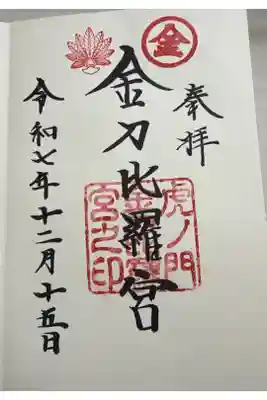 金
奉拝
金刀比羅宮
虎ノ門
宮之印
令和七年十二月十五日